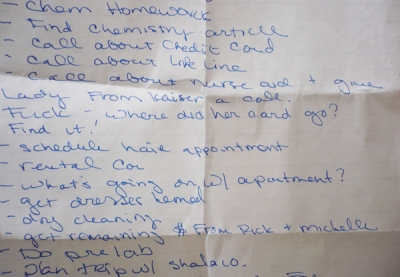 - Chem Homework
- Find Chemistry article
- Call about Credit Card
- Call about Life Line
- Call about nurse aid + give
Lady From Kaiser a call.
Fuck - where did her card go?
Find it!
- schedule hair appointment
- rental Car
- what's going on w/ apartment?
- get dresses hemed
- dry cleaning
- get remaining $ From Rick + michelle
- Do prelab
- Plan trip w/ shalaco.